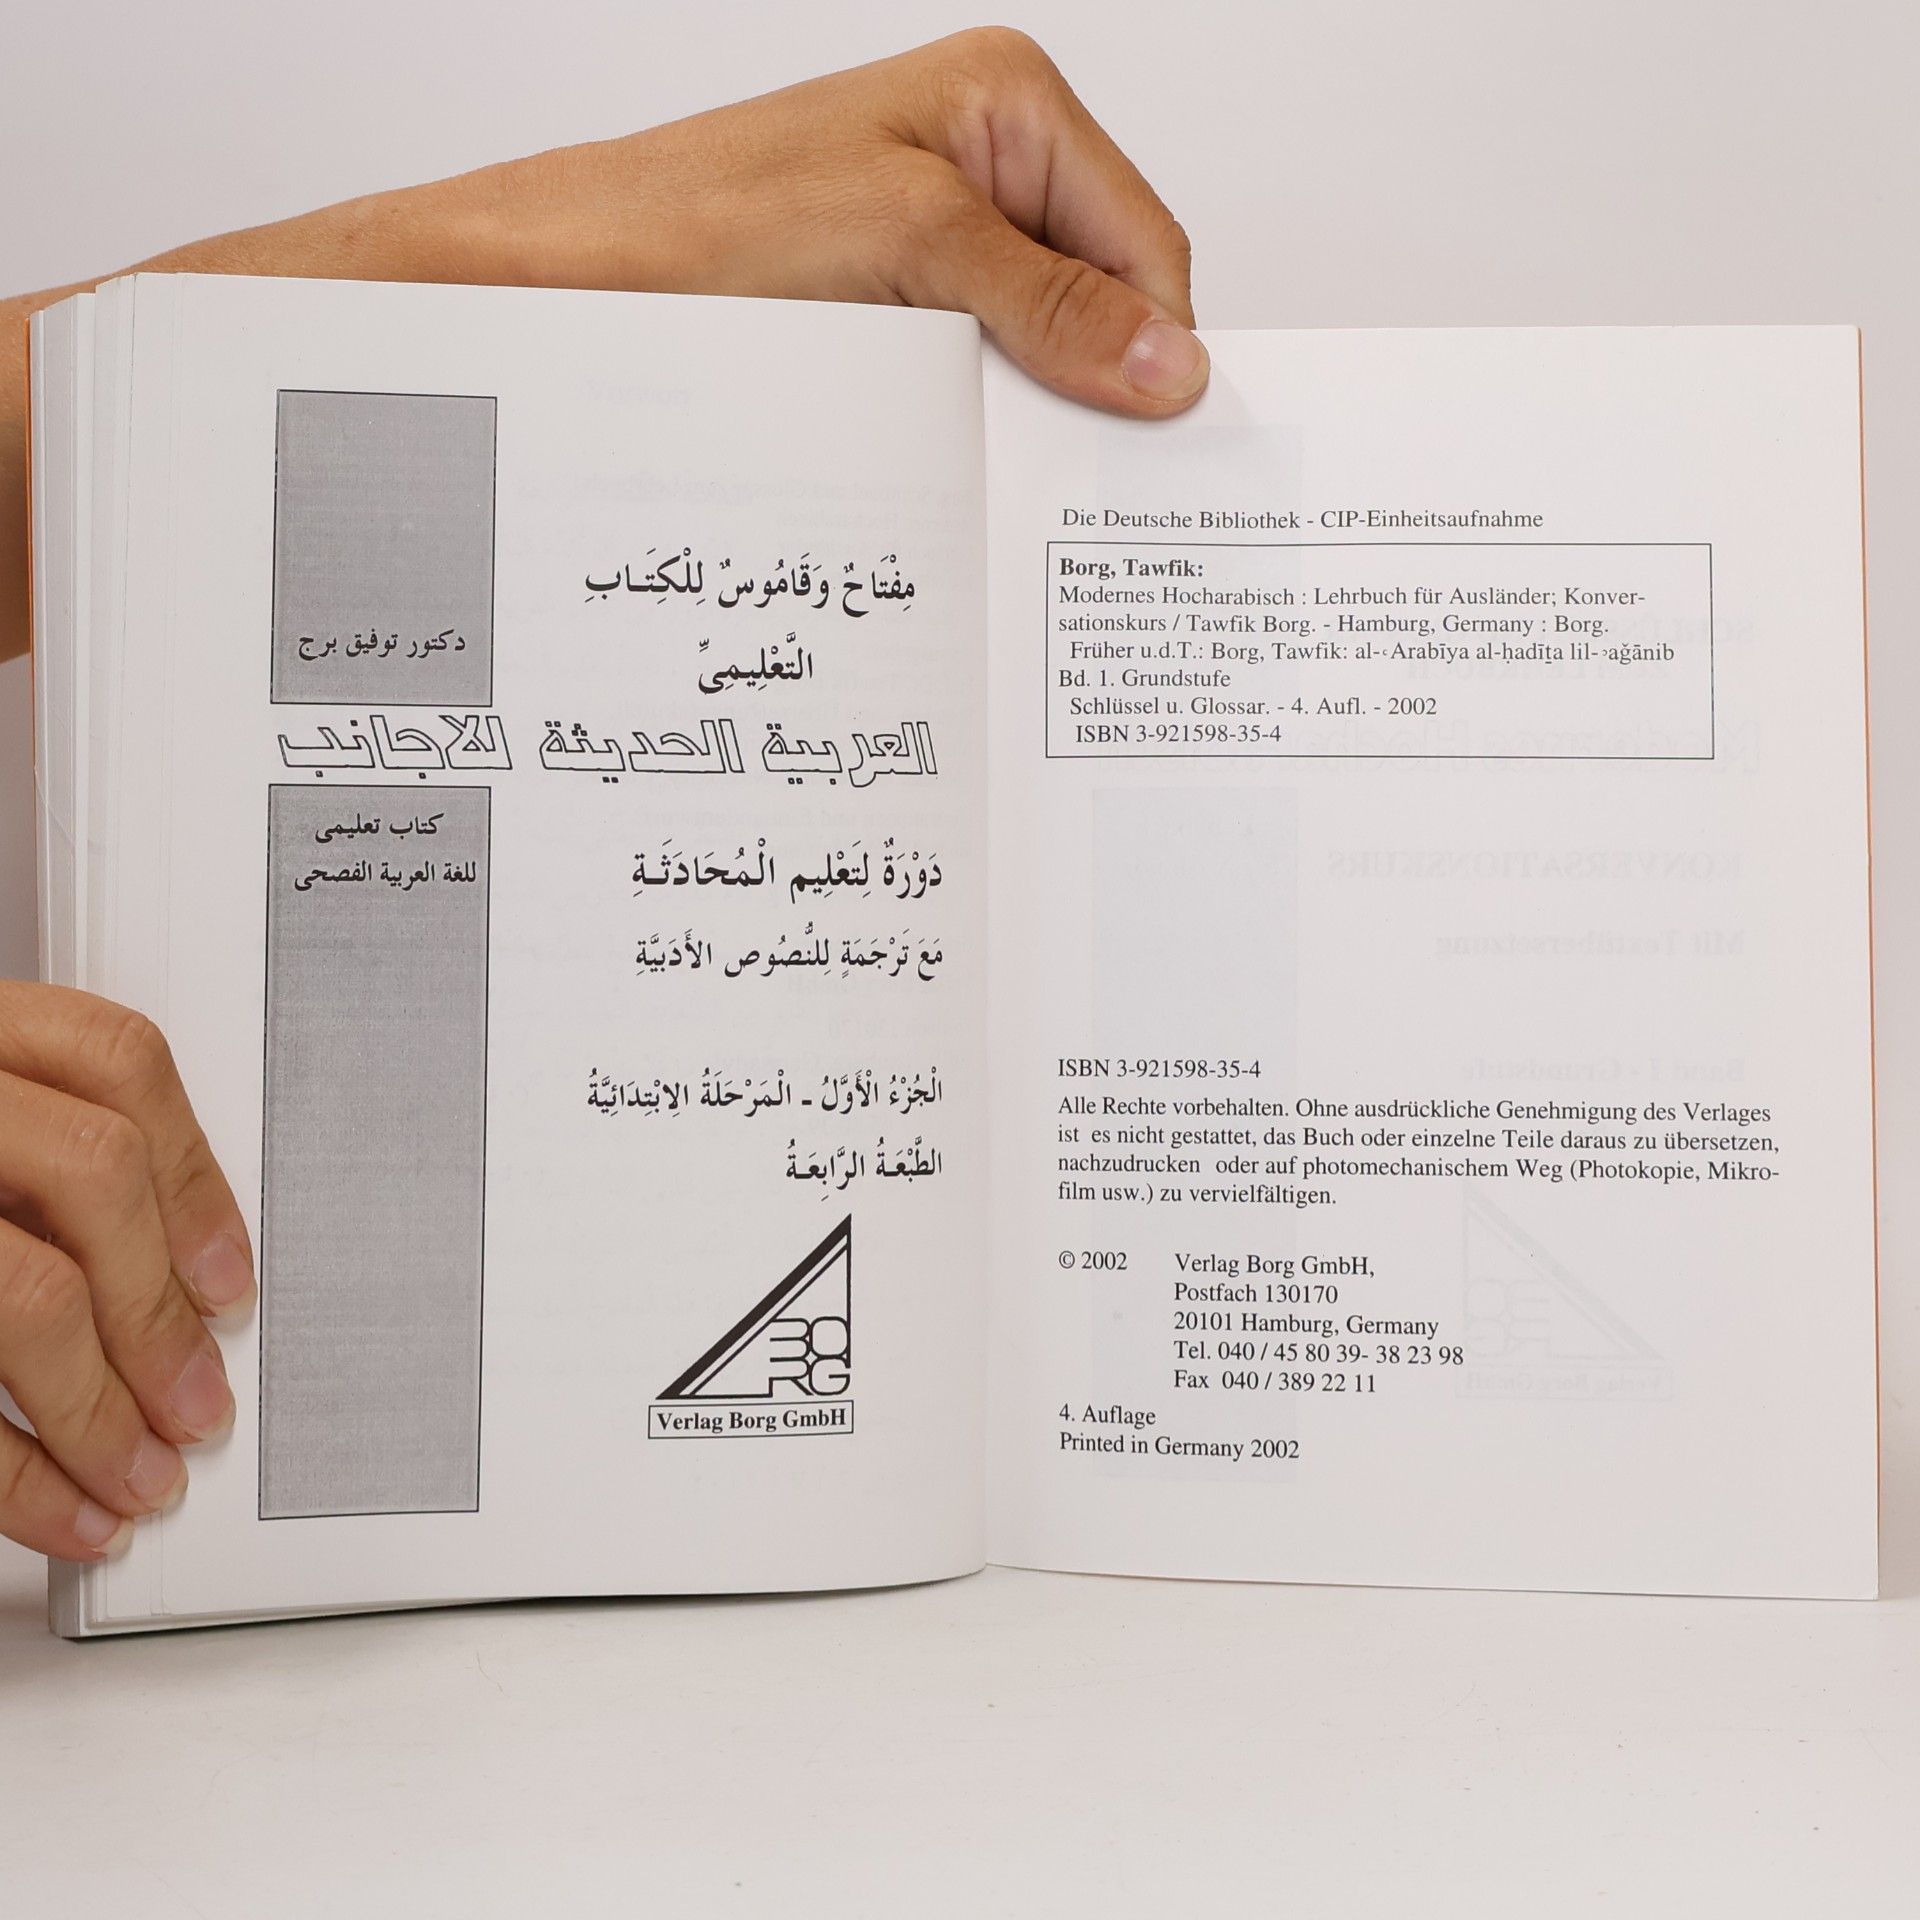 دكتور توفيق برج
مِفْتَاحٌ وَقَامُوسٌ لِلْكِتَـابِ
التَّعْلِيمِىِّ
العربية الحديثة للاجانب
كتاب تعليمى
للغة العربية الفصحى
دَوْرَةٌ لِتَعْلِيم الْمُحَادَثَـةِ
مَعَ تَرْجَمَةٍ لِلنُّصُوص الأَدَبيَّةِ
الْجُزْءُ الْأَوَّلُ ـ الْمَرْحَلَةُ الاِبْتِدَائِيَّةُ
الطَّبْعَـةُ الرَّابِعَـةُ
BORG
Verlag Borg GmbH
Die Deutsche Bibliothek - CIP-Einheitsaufnahme
Borg, Tawfik:
Modernes Hocharabisch : Lehrbuch für Ausländer; Konver-
sationskurs / Tawfik Borg. - Hamburg, Germany : Borg.
Früher u.d.T.: Borg, Tawfik: al-ʿArabīya al-ḥadīṯa lil-ʾaǧānib
Bd. 1. Grundstufe
Schlüssel u. Glossar. - 4. Aufl. - 2002
ISBN 3-921598-35-4
ISBN 3-921598-35-4
Alle Rechte vorbehalten. Ohne ausdrückliche Genehmigung des Verlages
ist es nicht gestattet, das Buch oder einzelne Teile daraus zu übersetzen,
nachzudrucken oder auf photomechanischem Weg (Photokopie, Mikro-
film usw.) zu vervielfältigen.
© 2002 Verlag Borg GmbH,
Postfach 130170
20101 Hamburg, Germany
Tel. 040 / 45 80 39- 38 23 98
Fax 040 / 389 22 11
4. Auflage
Printed in Germany 2002